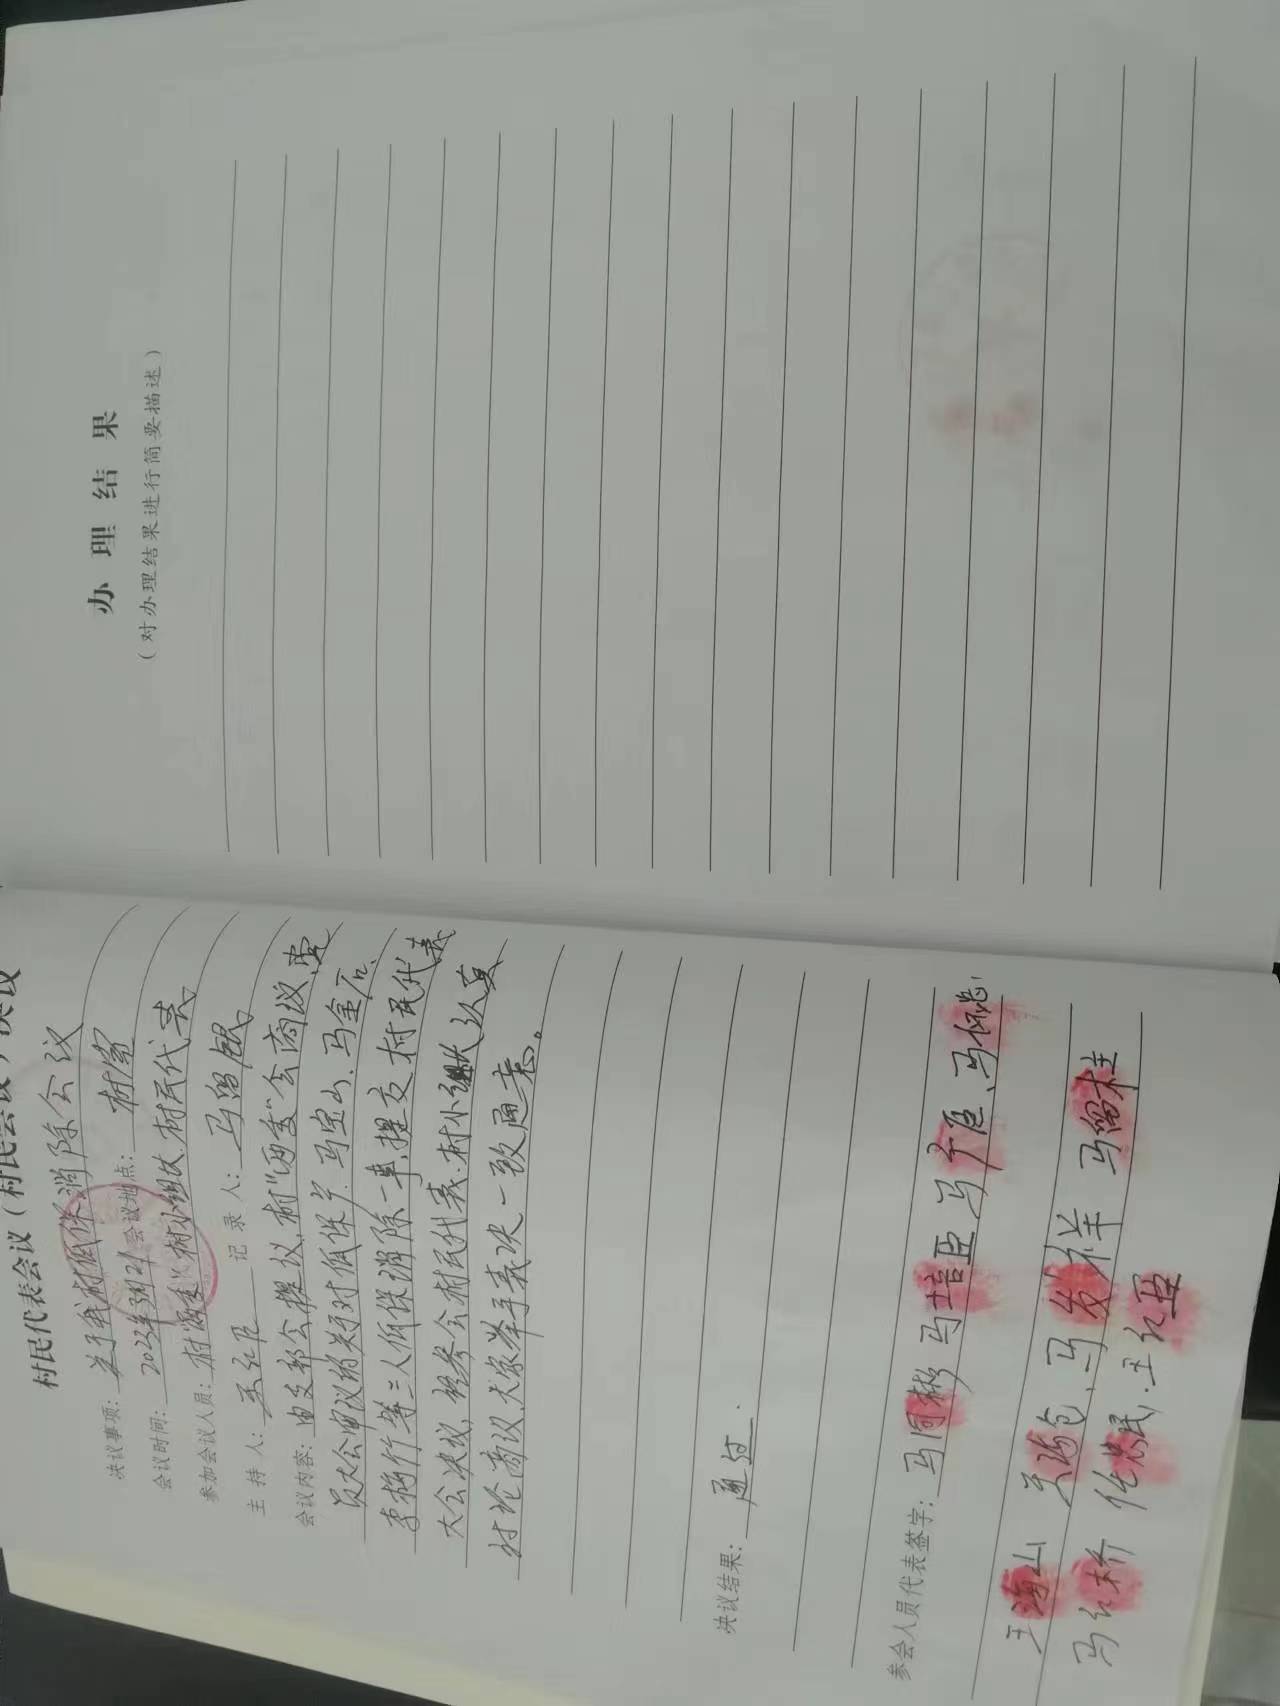 村民代表会议（村民会议）决议
决议事项：关于我村低保消除会议
会议时间：2023年3月21 会议地点：村室
参加会议人员：村"两委"村小组长、村民代表
主持人：王红臣 记录人：马留银
会议内容：由支部会提议，村"两委"会商议，党
员大会审议的关对低保户马宝山、马金
李 等三人低保消除一事，提交村民代表
大会决议，经参会村民代表、村小组长认真
讨论商议，大家举手表决一致通过。
决议结果：通过.
参会人员代表签字：马同彬 马培臣 马 臣、马
王海山 关海仓、马发祥 马留柱
马红桥 任 民、王红亚
办理结果
（对办理结果进行简要描述）